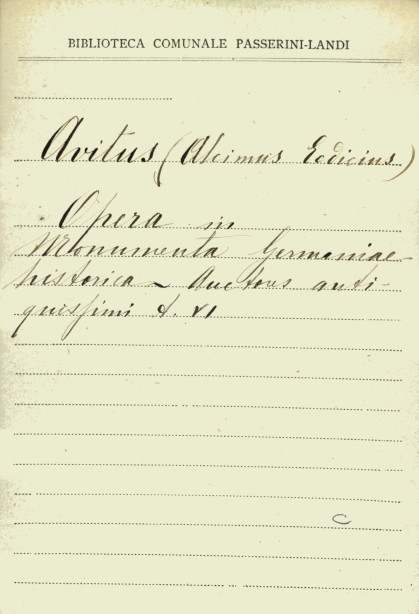 BIBLIOTECA COMUNALE PASSERINI-LANDI
Avitus (Alcimus Ecdicius)
Opera in
Monumenta Germaniae
historica - Auctores anti-
quissimi t. VI
C